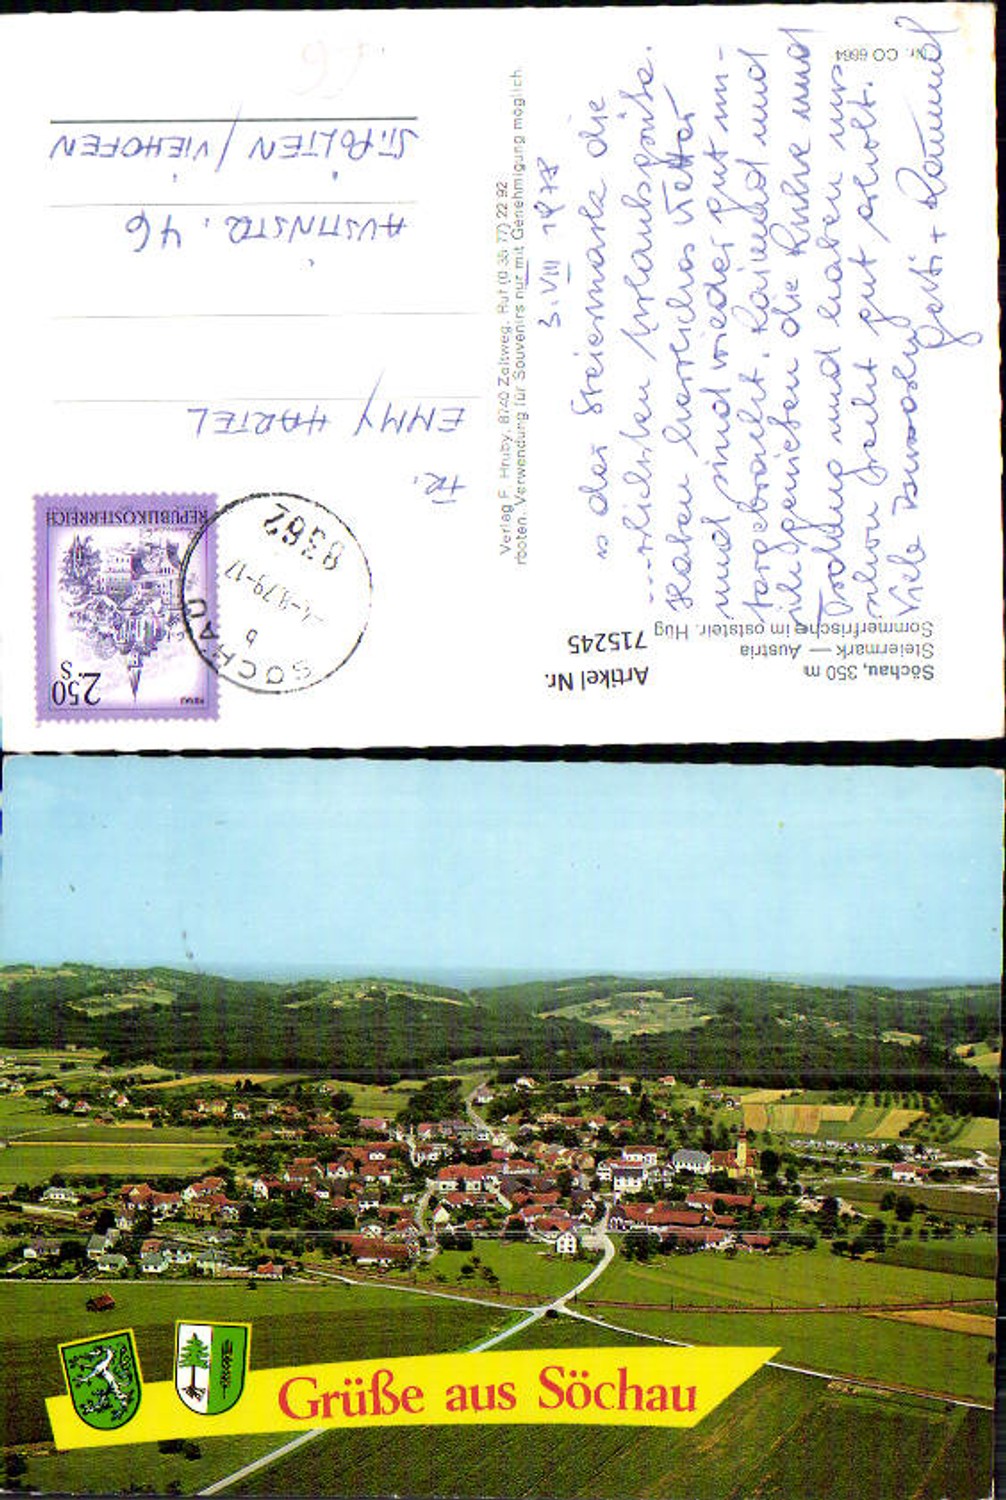 Söchau, 350 m
Steiermark — Austria
Sommerfrische im oststeir. Hüg
Artikel Nr.
715245
Nr. CO 6664
Verlag F. Hruby, 8740 Zeltweg, Ruf (0 35 77) 22 92
rboten. Verwendung für Souvenirs nur mit Genehmigung möglich.
3. VIII 1979
s der Steiermark die
Urlaubsgrüße.
Haben herrliches Wetter
und sind wieder gut un-
tergebracht. Raimund und
ich genießen die Ruhe und
und haben uns
schon recht gut erholt.
Viele
Gerti + Raimund
REPUBLIK ÖSTERREICH
S
2.50
SÖCHAU
b
-8.79-17
8362
FR.
EMMY HARTEL
AUSTINSTR. 46
ST. PÖLTEN / VIEHOFEN
Grüße aus Söchau